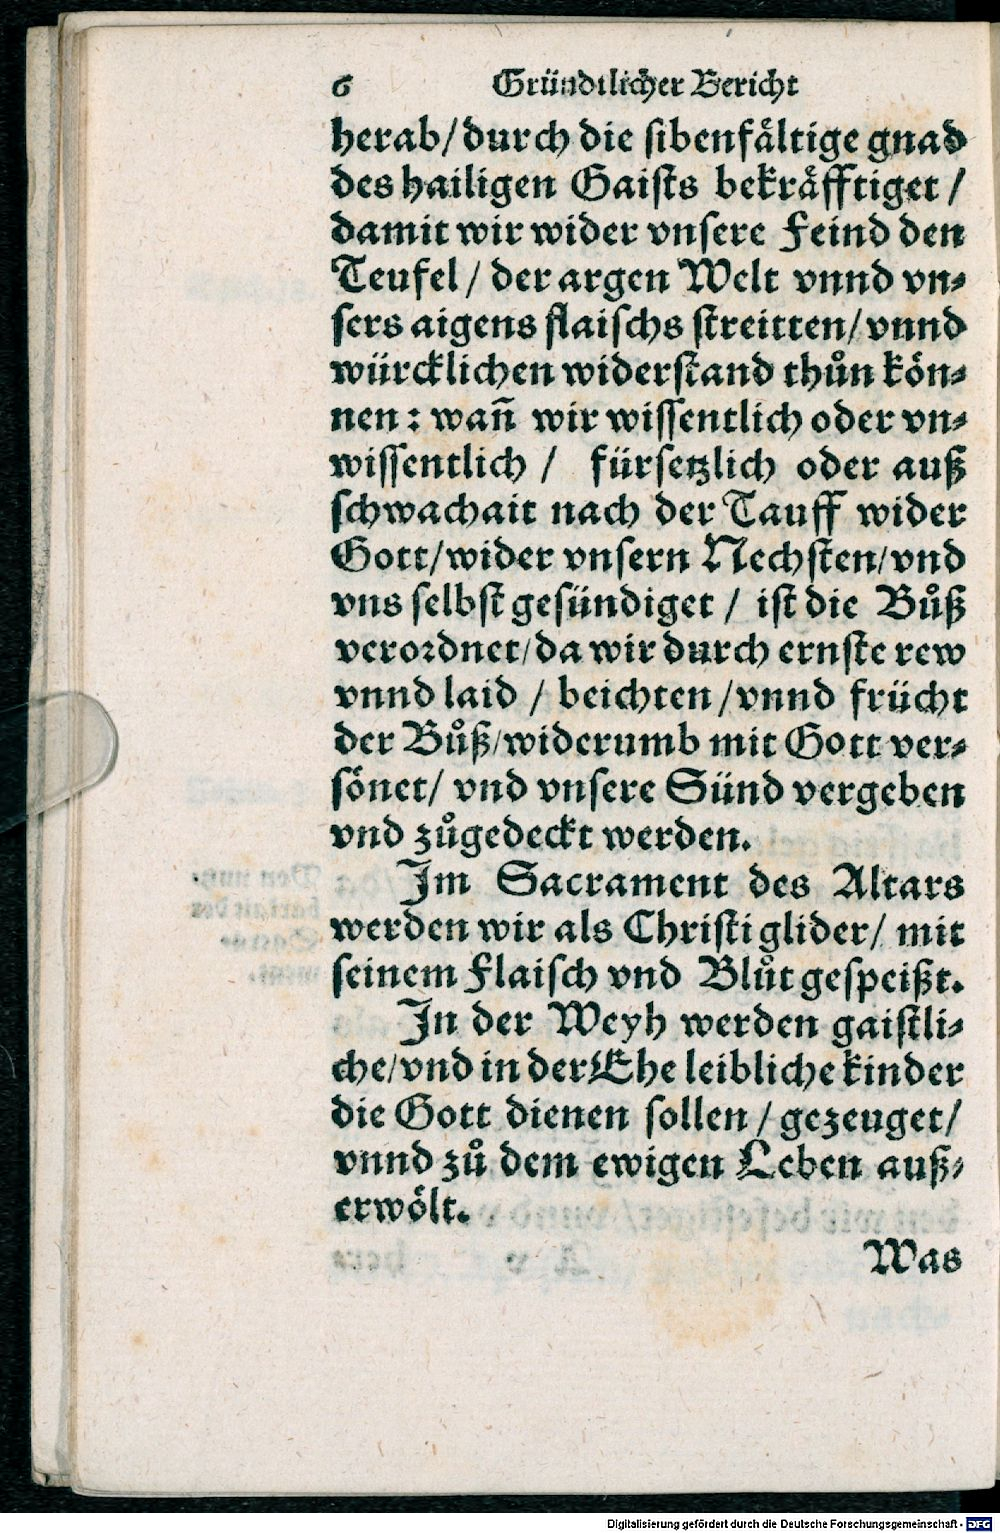 6 Gründtlicher Bericht
herab/durch die sibenfåltige gnad
des hailigen Gaists bekråfftiget /
damit wir wider vnsere Feind den
Teufel / der argen Welt vnnd vn⸗
sers aigens flaischs streitten/vnnd
würcklichen widerstand thůn kön⸗
nen : wañ wir wissentlich oder vn⸗
wissentlich / fürsetzlich oder auß
schwachait nach der Tauff wider
Gott/wider vnsern Nechsten/vnd
vns selbst gesündiget / ist die Bůß
verordnet/da wir durch ernste rew
vnnd laid / beichten /vnnd frücht
der Bůß/widerumb mit Gott ver⸗
sönet/ vnd vnsere Sünd vergeben
vnd zůgedeckt werden.
Im Sacrament des Altars
werden wir als Christi glider/ mit
seinem Flaisch vnd Blůt gespeißt.
In der Weyh werden gaistli⸗
che/vnd in der Ehe leibliche kinder
die Gott dienen sollen / gezeuget/
vnnd zů dem ewigen Leben auß⸗
erwölt.
Was
Digitalisierung gefördert durch die Deutsche Forschungsgemeinschaft - DFG